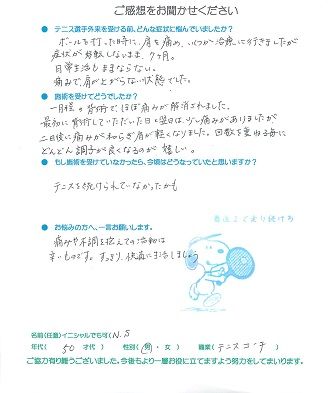 ご感想をお聞かせください
● テニス選手外来を受ける前、どんな症状に悩んでいましたか?
ボールを打った時に、肩を痛め、いくつか治療に行きましたが
症状が好転しないまま、7ヶ月。
日常生活もままならない。
痛みで、肩が上がらない状態でした。
● 施術を受けてどうでしたか?
一日程の背術でほぼ痛みが解消されました。
最初に背術していただいた日と翌日は、痛みがありましたが
二日後に痛みが和らぎ肩が軽くなりました。回数を重ね毎に
どんどん調子が良くなるのが嬉しい。
● もし施術を受けていなかったら、今頃はどうなっていたと思いますか?
テニスを続けられていなかったかも
● お悩みの方へ、一言お願いします。
痛みや不調を抱えての活動は
辛いものです。すっきり、快適に生活しましょう
名前(任意)イニシャルでも可( N.S
年代( 50 才代 ) 性別( 男 ・ 女 ) 職業( テニスコーチ )
ご協力有り難うございました。今後もより一層お役に立てますよう努力をしてまいります。